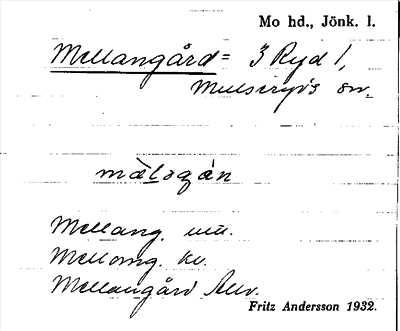 Mo hd., Jönk. l.
Mellangård = 3 Ryd 1,
Mulseryds sn.
Mellang. uu.
Mellomg. kv.
Mellangård Allv.
Fritz Andersson 1932.